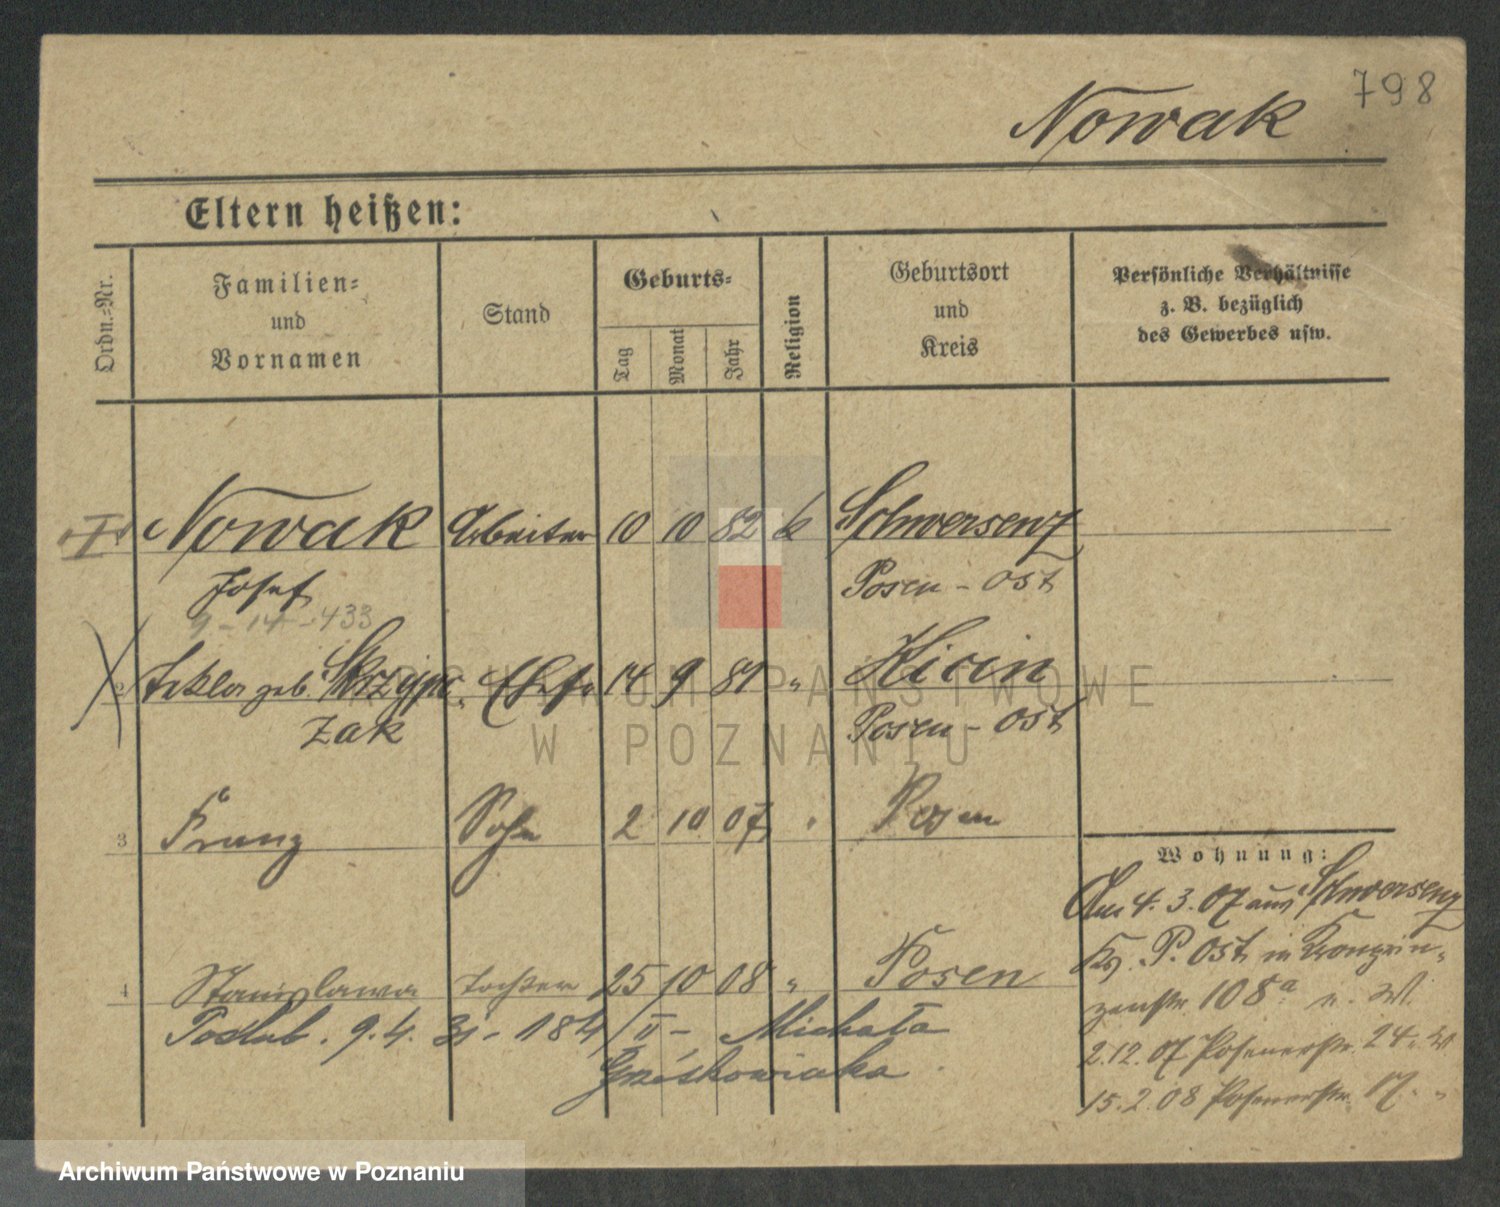 798
Nowak
Eltern heißen:
Ordn.-Nr.
Familien-
und
Vornamen
Stand
Geburts-
Tag
Monat
Jahr
Religion
Geburtsort
und
Kreis
Persönliche Verhältnisse
z. B. bezüglich
des Gewerbes usw.
Nowak Arbeiter 10 10 82 k Schwersenz
Josef Posen-Ost
9-14-433
2 Tekla geb. Skrzypc Ehefr 14 9 81 " Kicin
zak Posen-Ost
3 Franz Sohn 2 10 07 " Posen
Wohnung:
Am 4.3.07 aus Schwersenz
Kr. P. Ost in Kronprin-
zenstr. 108a n. W.
2.12.07 Posenerstr. 24 n. W
15.2.08 Posenerstr. 17. "
4 Stanislawa Tochter 25 10 08 " Posen
Poślub. 9.4. 31 - 184/II - Michała
Grześkowiaka
ARCHIWUM PAŃSTWOWE
W POZNANIU
Archiwum Państwowe w Poznaniu